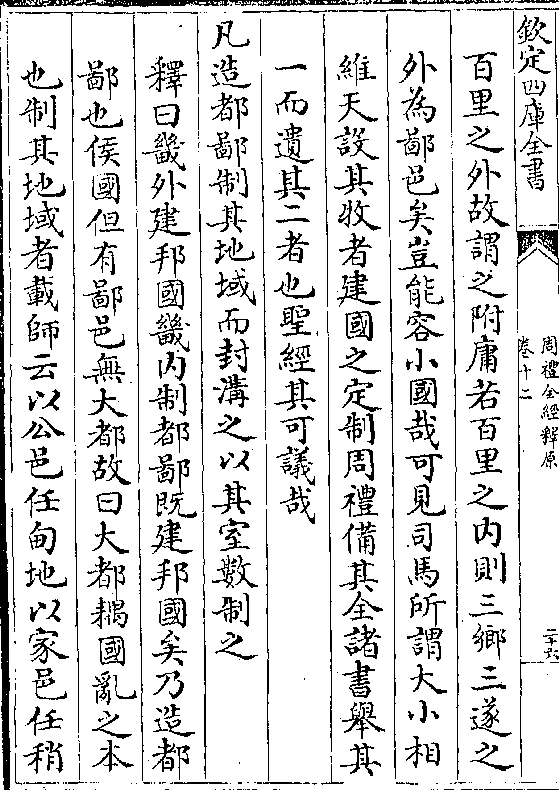 欽定四庫全書
周禮全經釋原
卷十二
二十六
百里之外故謂之附庸若百里之内則三鄉三遂之
外為鄙邑矣豈能容小國哉可見司馬所謂大小相
維天設其牧者建國之定制周禮備其全諸書舉其
一而遺其二者也聖經其可議哉
凡造都鄙制其地域而封溝之以其室數制之
釋曰畿外建邦國畿内制都鄙既建邦國矣乃造都
鄙也侯國但有鄙邑無大都故曰大都耦國亂之本
也制其地域者載師云以公邑任甸地以家邑任稍